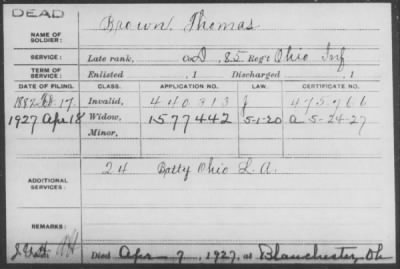 DEAD
NAME OF SOLDIER: Brown, Thomas
SERVICE: Late rank, Co. D, 85 Reg't Ohio Inf
TERM OF SERVICE: Enlisted , 1 Discharged , 1
DATE OF FILING. CLASS. APPLICATION NO. LAW. CERTIFICATE NO.
1882 Feb 17 Invalid, 440313 J 475766
1927 Apr 18 Widow, 1577442 5-1-20 a 5-24-27
Minor,
ADDITIONAL SERVICES: 24 Batty Ohio L. A.
REMARKS:
Died Apr 7, 1927, at Blanchester, Oh